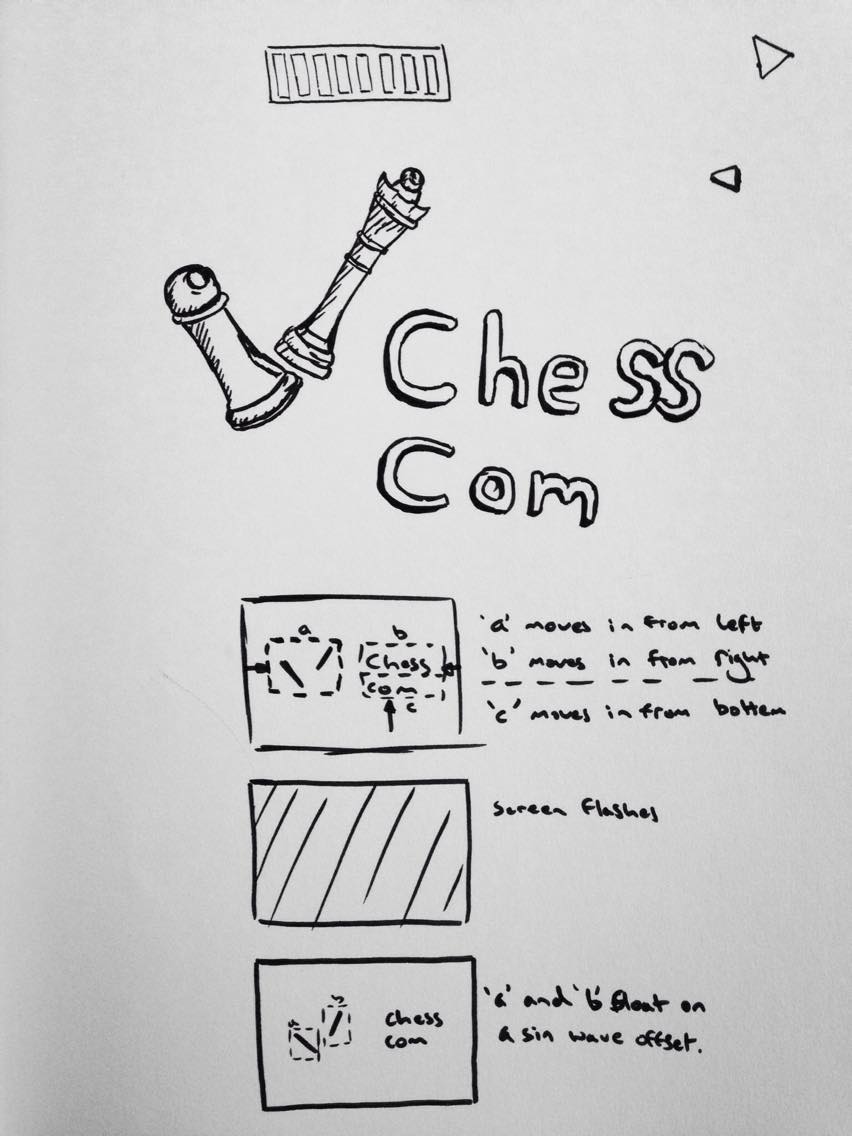 Chess
Com
a
b
Chess
com
c
'a' moves in from left
'b' moves in from right
'c' moves in from bottem
Screen flashes
a
b
chess
com
'a' and 'b' float on
a sin wave offset.